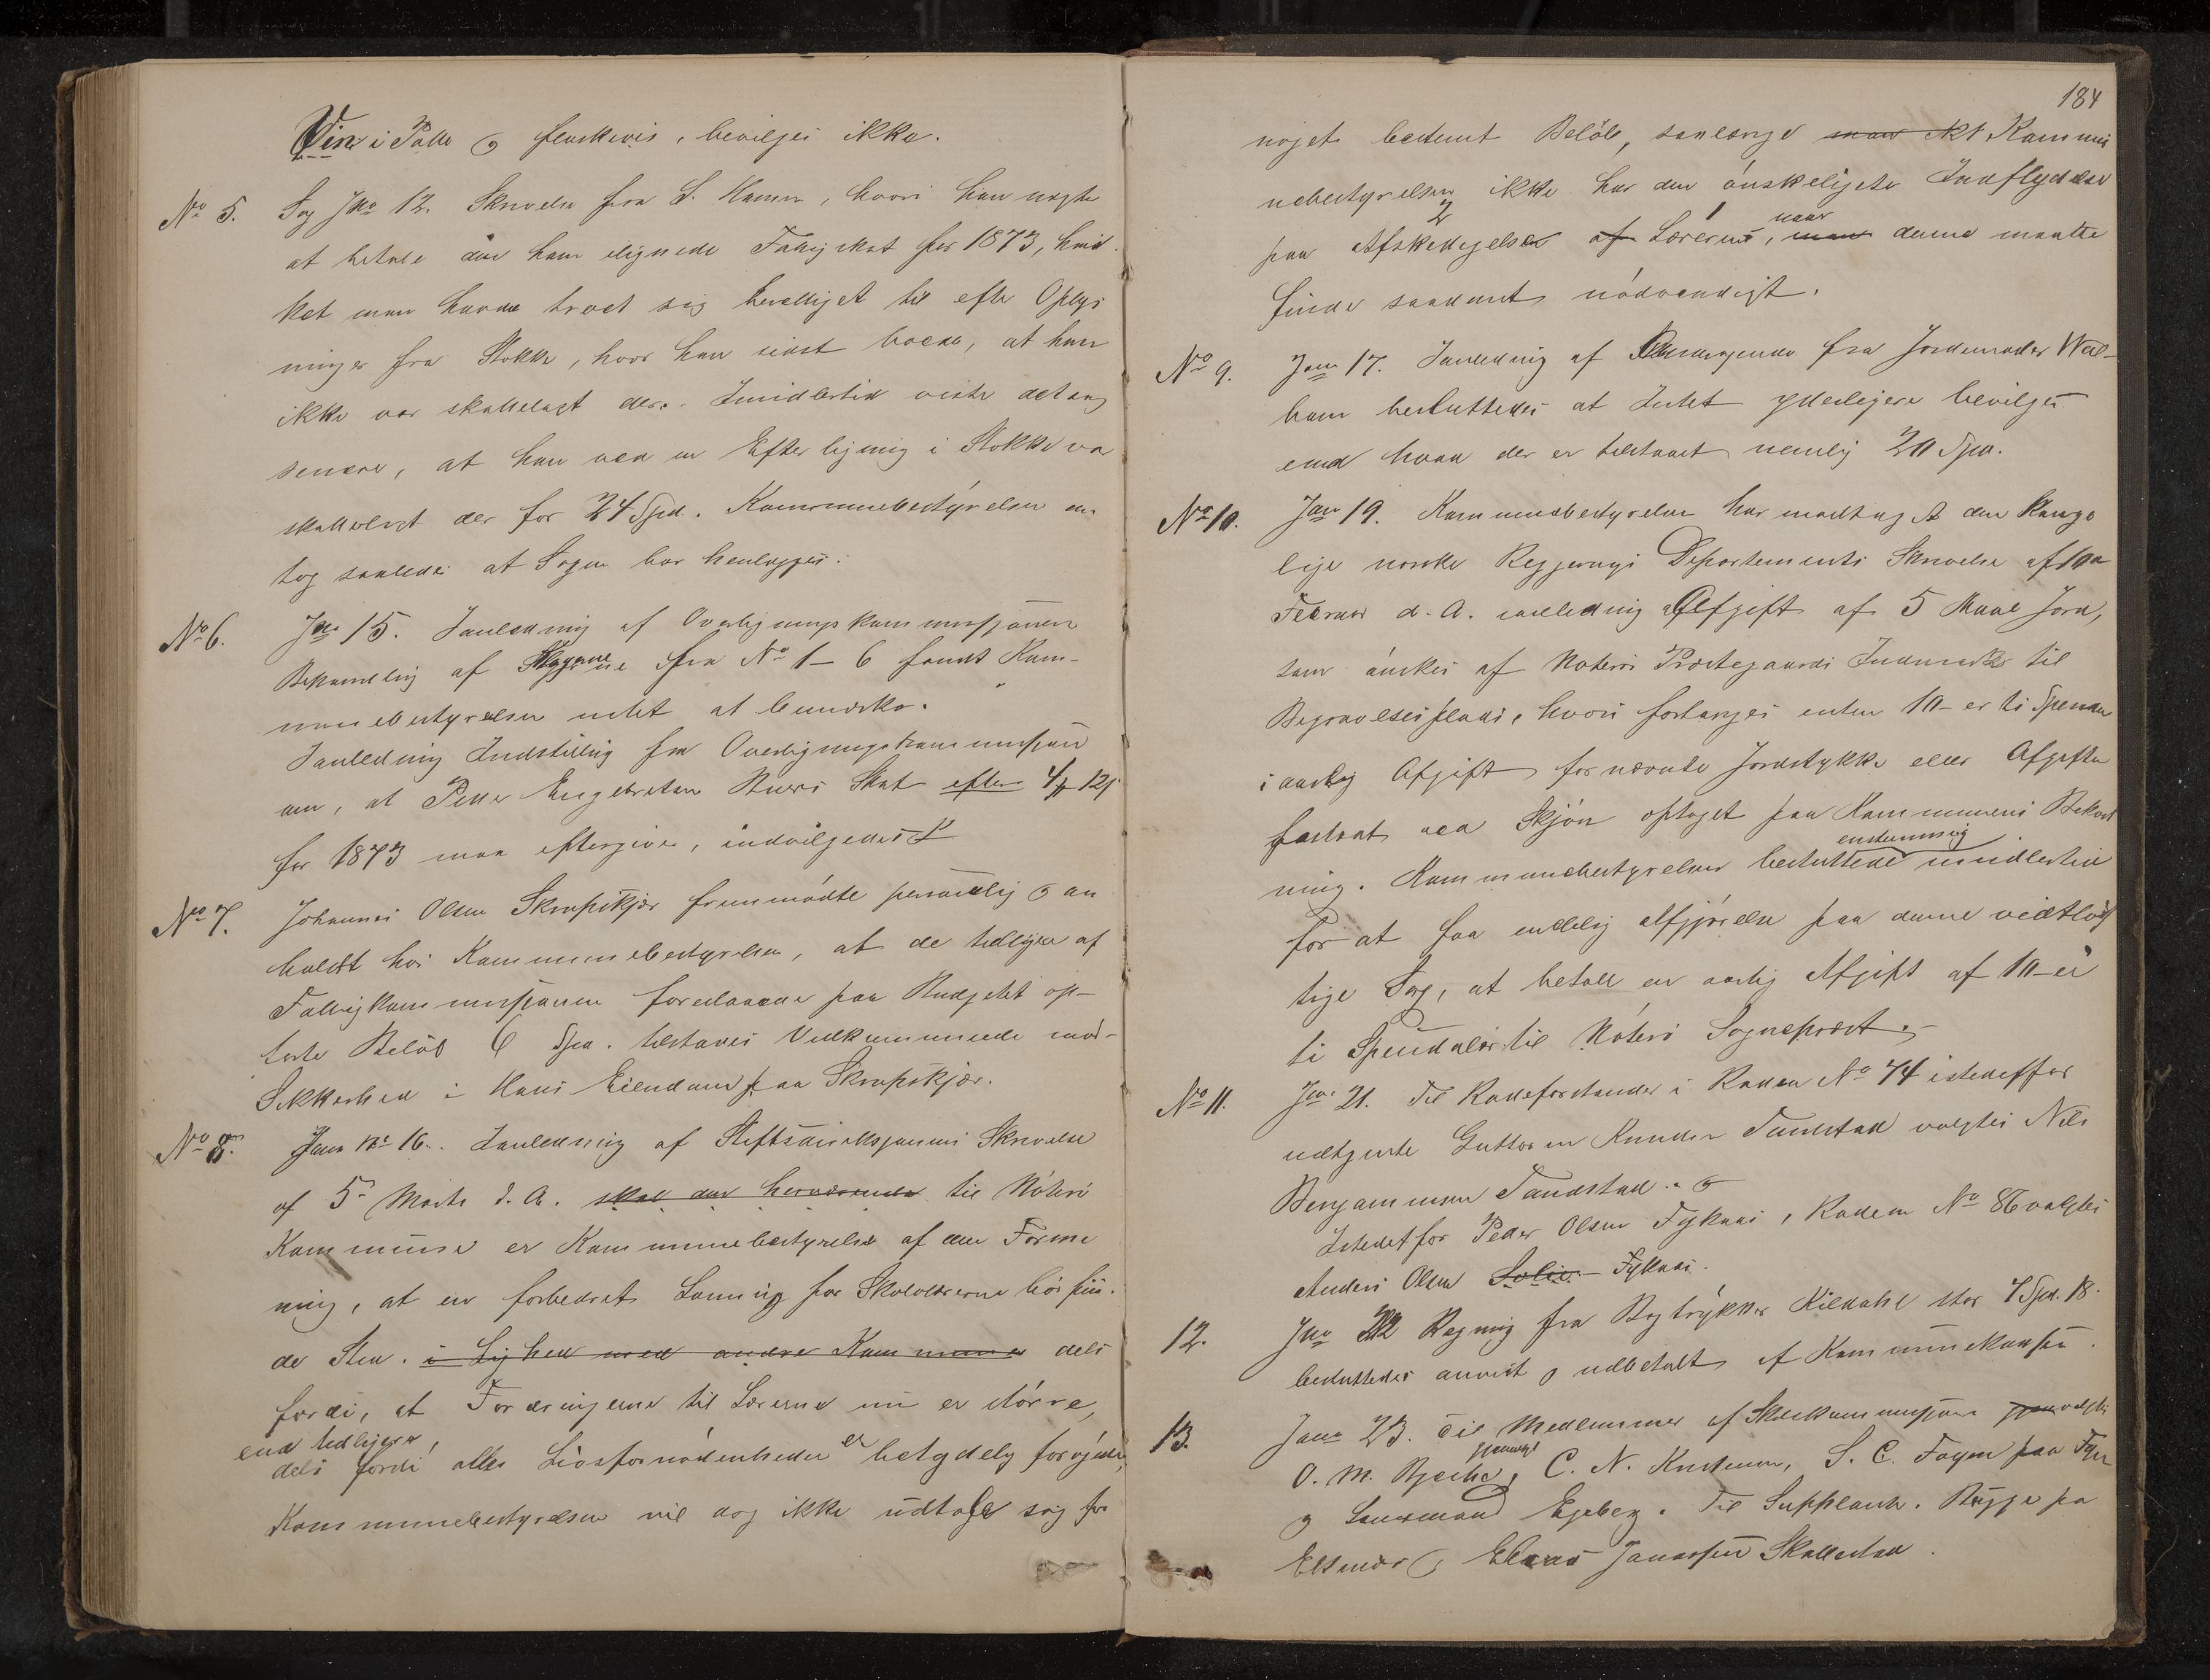 Vin i Potte og flaskevis, bevilges ikke.
No 5. Sag Jno 12. Skrivelse fra S. Hansen, hvori han nægter
at betale den ham ilignede Fattigskat for 1873, hvil
ket man havde troet sig berettiget til efter Oplys
ninger fra Stokke, hvor han sidst boede, at han
ikke var skattelagt der. Imidlertid viste det sig
senere, at han ved en Efterligning i Stokke var
skattelagt der for 24 Spd. Kommunebestyrelsen an
tog saaledes at Sagen bør henlægges.
No 6. Jno 15. I anledning af Overligningskommissjonens
Behandling af Klagerne fra No 1 – 6 fandt Kom-
munebestyrelsen intet at bemærke.
I anledning Indstilling fra Overligningskommissjonen
om, at Peder Engebretsen Skat efter
for 1873 maa eftergives, indvilgedes
No 7. Johannes Olsen Skrapskjær fremmødte personlig og an
holdt hos Kommunebestyrelsen, at de tidligere af
Fattigkommissjonen foreslaaede paa Budgetet op-
førte Beløb 6 Spd. tilstaaes Vedkommende mod
Sikkerhed i Hans Eiendom paa Skrapskjær.
No 8. Jour No 16. I anledning af Stiftsdireksjonens Skrivelse
af 5te Marts d. A. skal den herværende til Nøterø
Kommune er Kommunebestyrelse af den Forme
ning, at en forbedret Lønning for Skolelærerne bør fin
de Sted. i Lighed med andre Kommuner dels
fordi, at Fordringerne til Lærerne nu er større,
end tidligere,
dels fordi alle Livsfornødenheder er betydelig forøgede,
Kommunebestyrelsen vil dog ikke udtale sig for
184
noget bestemt Beløb, saalænge man ikke Kommu
nebestyrelsen ikke har den ønskeligste Indflydelse
paa Afskedigelse af Lærerne, naar man denne maatte
finde saadant nødvendigt.
No 9. Jour 17. I anledning af Andragende fra Jordmoder Wel-
ham besluttedes at Intet yderligere bevilges
end hvad der er tilstaaet nemlig 20 Spd.
No 10. Jour 19. Kommunebestyrelsen har modtaget den konge
lige norske Regjerings Departements Skrivelse af 10de
Februar d. A. i anledning Afgift af 5 Maal Jord,
som ønskes af Nøterø Præstegaards Indmark til
Begravelsesplads, hvori forlanges enten 10 – er ti Spesidaler
i aarlig Afgift for nævnte Jordstykke eller Afgiften
fastsat ved Skjøn optaget paa Kommunens Bekost
ning. Kommunebestyrelsen besluttede enstemmig imidlertid
for at faa endelig Afgjørelse paa denne vidtløf
tige Sag, at betale en aarlig Afgift af 10 – er
ti Spesidaler til Nøterø Sognepræst.
No 11. Jno 21. Til Rodeforstander i Roden No 74 istedetfor
udtjente Guttorm Knudsen Tandstad valgtes Nils
Benjaminsen Tandstad. og
Istedetfor Peder Olsen Fyknes, Roden No 86 valgtes
Anders Olsen Solie – Fyknes.
12. Jno 22 Regning fra Bogtrykker Kildahl stor 4 Spd. 18.
besluttedes anvist og udbetalt af Kommunekassen.
13. Jour 23. Til Medlemmer af Skolekommissjonen gjen valgtes
gjenvalgt
O. M. Bjerke, C. N. Knudsen, S. C. Fagen paa
og Lensmand Egeberg. Til Supplant. Bugge paa
Elsnæs og Elias Jonassen Skallestad.